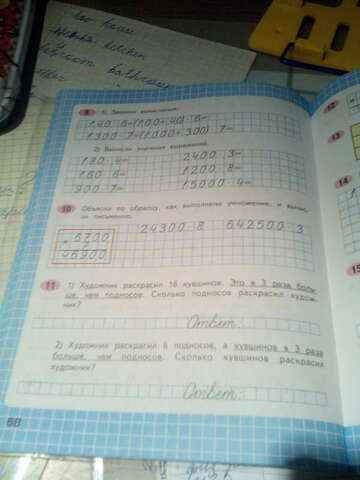 9 1) Закончи вычисления.
140·6=(100+40)·6=
1300·7=(1000+300)·7=
2) Вычисли значения выражений.
180·4= 2400·3=
160·6= 1200·8=
900·7= 15000·4=
10 Объясни по образцу, как выполнено умножение, и вычис-
ли письменно.
24300·8 642500·3
×6700
7
46900
11 1) Художник раскрасил 18 кувшинов. Это в 3 раза боль-
ше, чем подносов. Сколько подносов раскрасил худож-
ник?
Ответ:
2) Художник раскрасил 6 подносов, а кувшинов в 3 раза
больше, чем подносов. Сколько кувшинов раскрасил
художник?
Ответ:
68
12
13
14
15
kitchen
bathroom